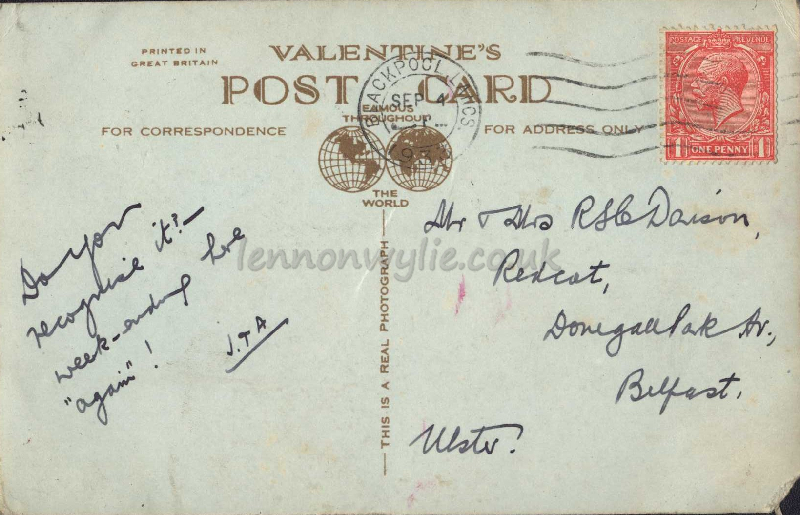 PRINTED IN
GREAT BRITAIN
VALENTINE'S
POST CARD
FAMOUS
THROUGHOUT
THE
WORLD
FOR CORRESPONDENCE
FOR ADDRESS ONLY
THIS IS A REAL PHOTOGRAPH
BLACKPOOL LANCS.
SEP 4
POSTAGE REVENUE
ONE PENNY
Do you
recognise it?—
week-ending here
"again"!
J.T.A
Mr & Mrs
Redcot,
Donegall Park Av.,
Belfast.
Ulster.
lennonwylie.co.uk